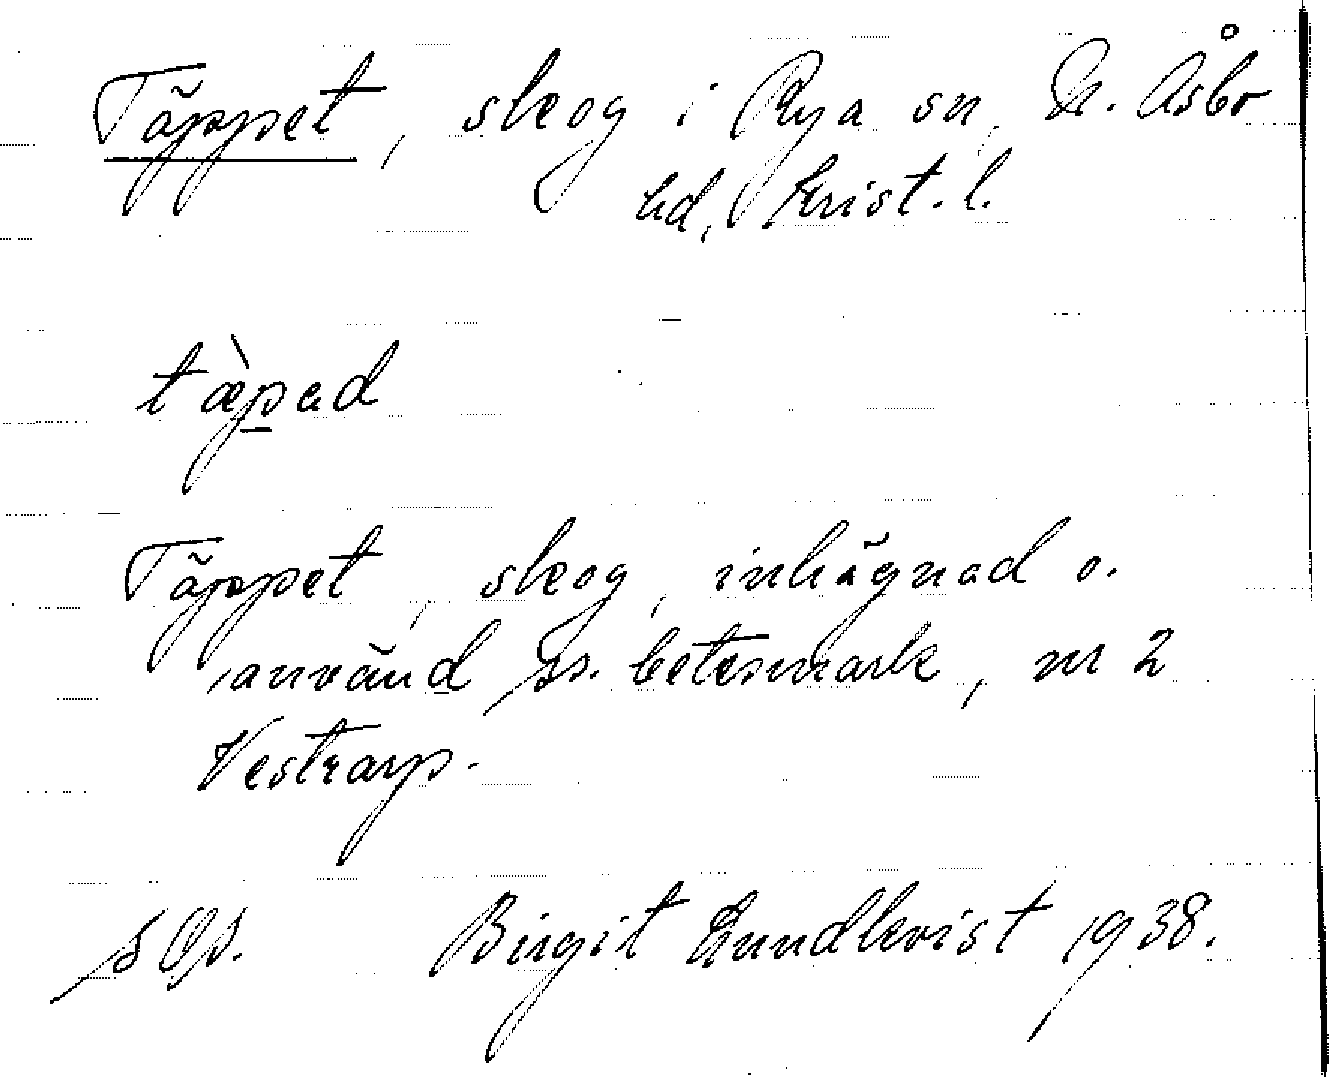 Täppet, skog i Rya sn, N. Åsbo
hd, Krist. l.
tæ̀p̲ad
Täppet, skog, inhägnad o.
använd ss. betesmark, nr 2
Vestrarp.
Birgit Lundkvist 1938.